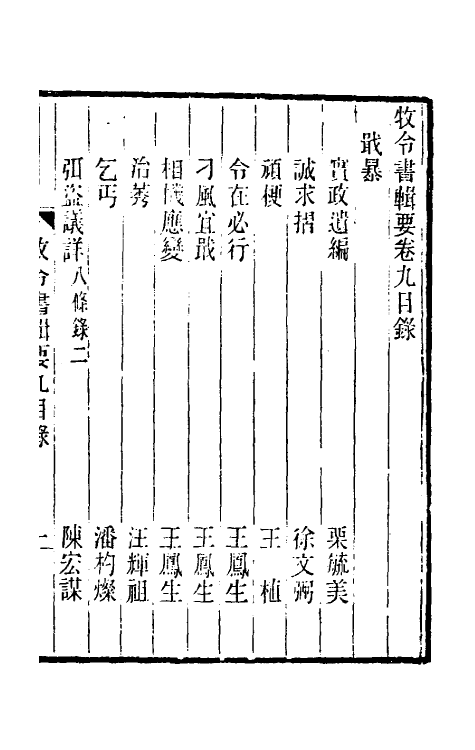 牧令書輯要卷九目錄
戢暴
實政遺編 栗毓美
誠求摺 徐文弼
頑梗 王植
令在必行 王鳳生
刁風宜戢 王鳳生
相機應變 王鳳生
治莠 汪輝祖
乞丐 潘杓燦
弭盜議詳八條錄二 陳宏謀
牧令書輯要九目錄 一